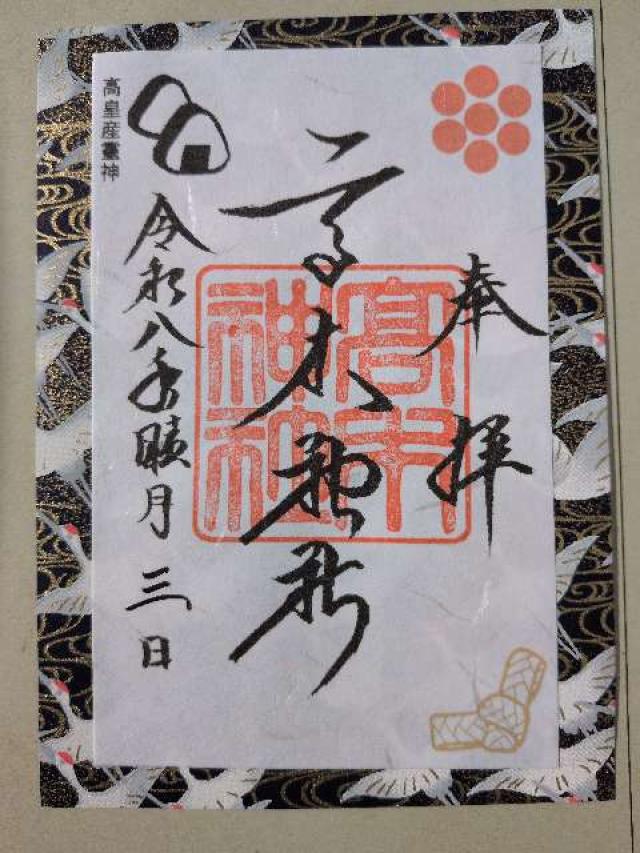 奉拝
高木神社
高木神社
高皇産靈神
令和八年睦月三日